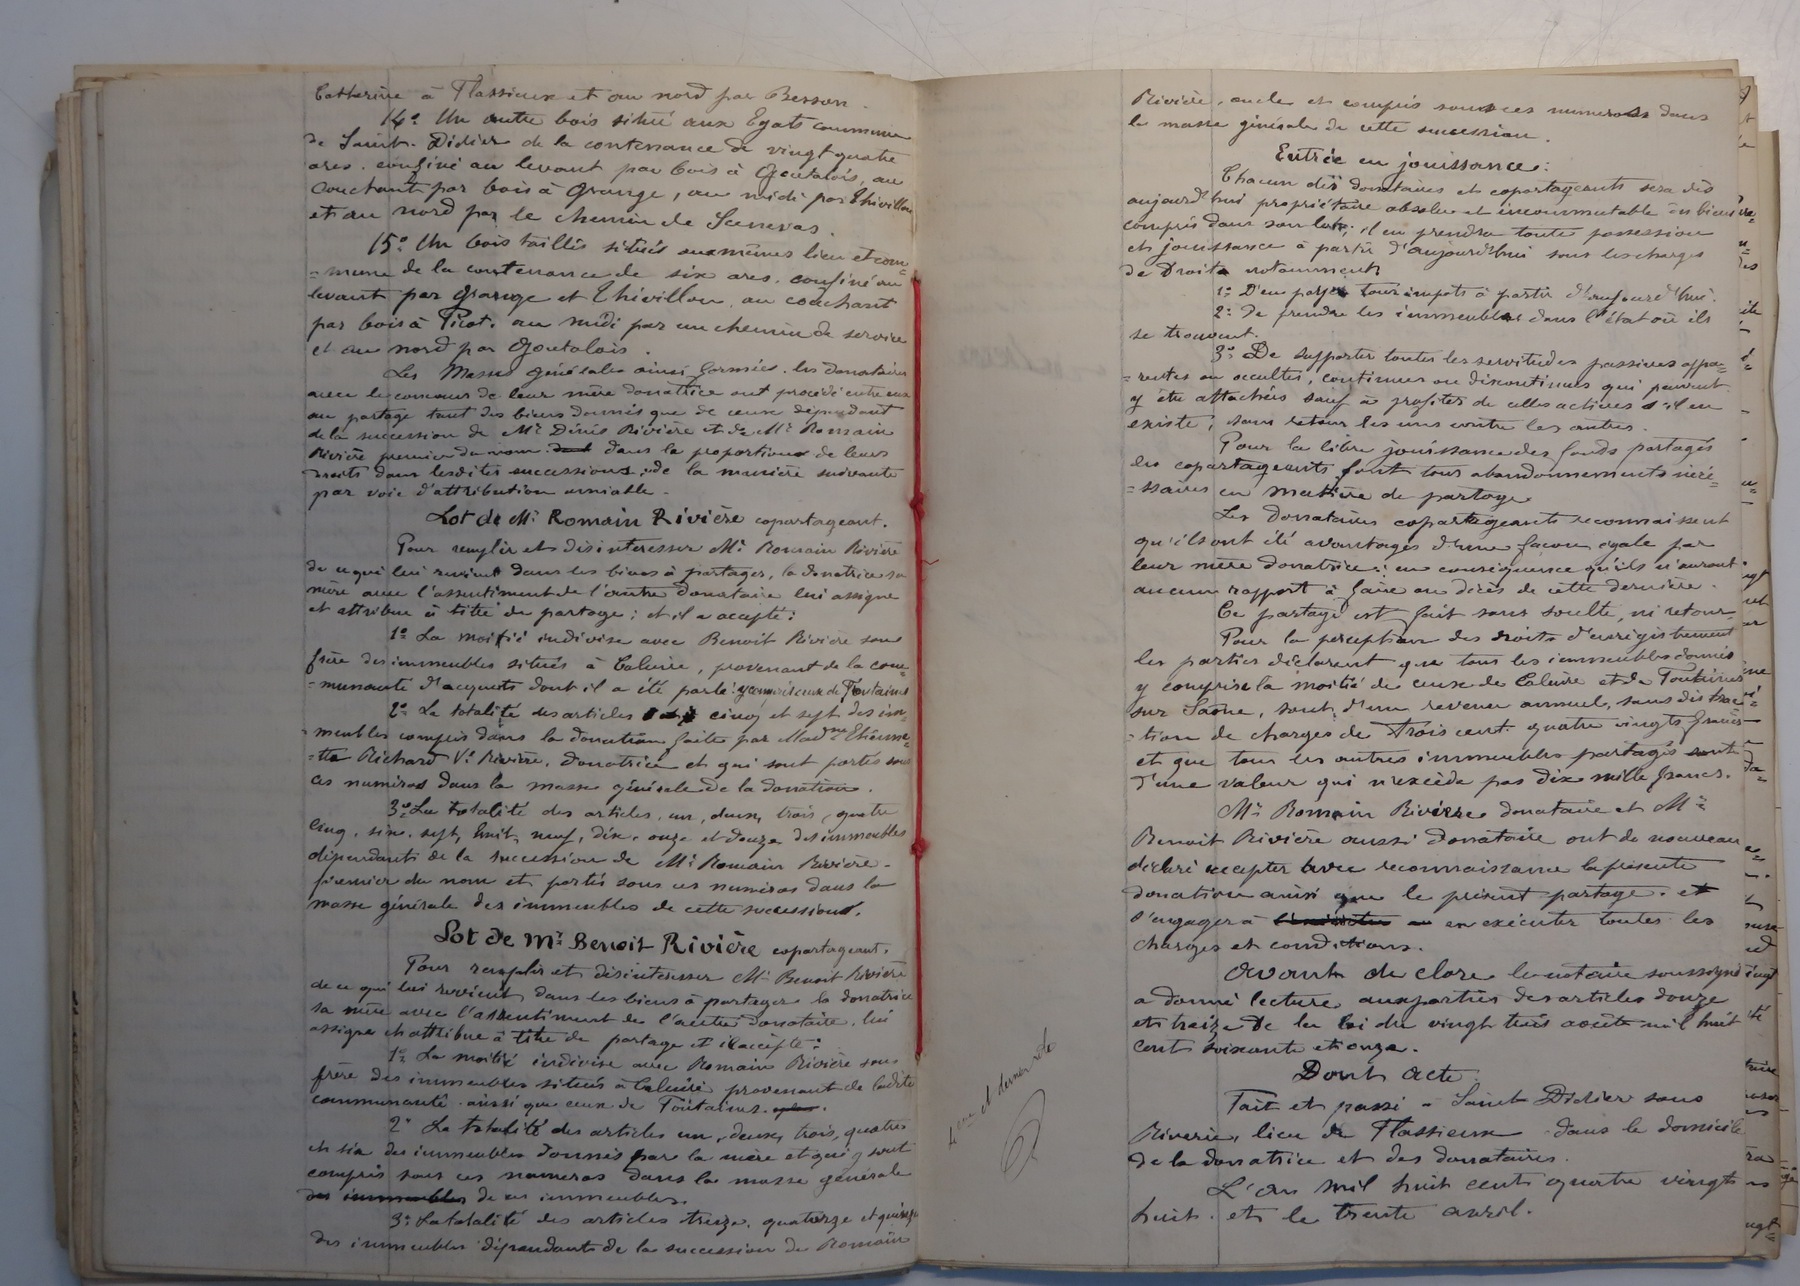 Catherine à Flassieux et au nord par Besson.
14º Un autre bois situé aux Egats commune
de Saint-Didier de la contenance de vingt quatre
ares. confiné au levant par bois à Goutalois, au
Couchant par bois à Grange, au midi par Thivillon
et au nord par le chemin de Senevas.
15º Un bois taillis situés aux mêmes lieu et com-
=mune de la contenance de six ares. confiné au
levant par Grange et Thivillon, au couchant
par bois à Picot. au midi par un chemin de service
et au nord par Goutalois.
Les Masses générales ainsi formées. les donataires
avec le concours de leur mère donatrice ont procédé entre eux
au partage tant des biens donnés que de ceux dépendant
de la succession de Mr Denis Rivière et de Mr Romain
Rivière premier du nom dans la proportion de leurs
droits dans lesdites successions; de la manière suivante
par voie d'attribution amiable.
Lot de Mr Romain Rivière copartageant.
Pour remplir et désintéresser Mr Romain Rivière
de ce qui lui revient dans les biens à partager, la donatrice sa
mère avec l'assentiment de l'autre donataire lui assigne
et attribue à titre de partage; et il a accepté:
1º La moitié indivise avec Benoit Rivière son
frère des immeubles situés à Caluire, provenant de la com-
=munauté d'acquets dont il a été parlé y compris ceux de Fontaines
2º La totalité des articles cinq et sept des im-
=meubles compris dans la donation faite par Madme Etienne-
=tte Richard Ve Rivière, donatrice et qui sont portés sous
ces numéros dans la masse générale de la donation.
3º La totalité des articles, un, deux, trois, quatre
cinq, six, sept, huit, neuf, dix, onze et douze des immeubles
dépendants de la succession de Mr Romain Rivière-
premier du nom et portés sous ces numéros dans la
masse générale des immeubles de cette succession.
Lot de Mr Benoit Rivière copartageant.
Pour remplir et désintéresser Mr Benoit Rivière
de ce qui lui revient dans les biens à partager la donatrice
sa mère avec l'assentiment de l'autre donataire, lui
assigne et attribue à titre de partage et il accepte:
1º La moitié indivise avec Romain Rivière son
frère des immeubles situés à Caluire provenant de ladite
communauté. aussi que ceux de Fontaines.
2º La totalité des articles un, deux, trois, quatres
et six des immeubles donnés par la mère et qui y sont
compris sous ces numéros dans la masse générale
des immeubles de ces immeubles.
3º La totalité des articles treize, quatorze et quinze
des immeubles dépendants de la succession de Romain
4eme et dernier rôle
Rivière, oncle et compris sous ces numéros dans
la masse générale de cette succession.
Entrée en jouissance:
Chacun des donataires et copartageants sera dès
aujourd'hui propriétaire absolu et incommutable des biens
compris dans son lot; il en prendra toute possession
et jouissance à partir d'aujourd'hui sous les charges
de Droit notamment
1º D'en payer tous impots à partir d'aujourd'hui.
2º De prendre les immeubles dans l'état où ils
se trouvent.
3º De supporter toutes les servitudes passives appa-
=rentes ou occultes, continues ou discontinues qui peuvent
y être attachées sauf à profiter de celles actives s'il en
existe, sans retour les uns contre les autres.
Pour la libre jouissance des fonds partagés
les copartageants font tous abandonnements néce-
=ssaires en matière de partage
Les donataires copartageants reconnaissent
qu'ils ont été avantagés d'une façon égale par
leur mère donatrice: en conséquence qu'ils n'auront
aucun rapport à faire au décès de cette dernière.
Ce partage est fait sans soulte, ni retour.
Pour la perception des droits d'enregistrement
les parties déclarent que tous les immeubles donnés
y compris la moitié de ceux de Caluire et de Fontaines
sur Saône, sont d'un revenu annuel, sans distrac-
=tion de charges de trois cent quatre vingts francs
et que tous les autres immeubles partagés sont
d'une valeur qui n'excède pas dix mille francs.
Mr Romain Rivière donataire et Mr
Benoit Rivière aussi donataire ont de nouveau
déclaré accepter avec reconnaissance la présente
donation ainsi que le présent partage. et
s'engager à en exécuter toutes les
charges et conditions.
Avant de clore le notaire soussigné
a donné lecture aux parties des articles douze
et treize de la loi du vingt trois août mil huit
cent soixante et onze.
Dont Acte
Fait et passé à Saint Didier sous
Riverie, lieu de Flassieux dans le domicile
de la donatrice et des donataires.
L'an mil huit cent quatre vingt
huit. et le trente avril.